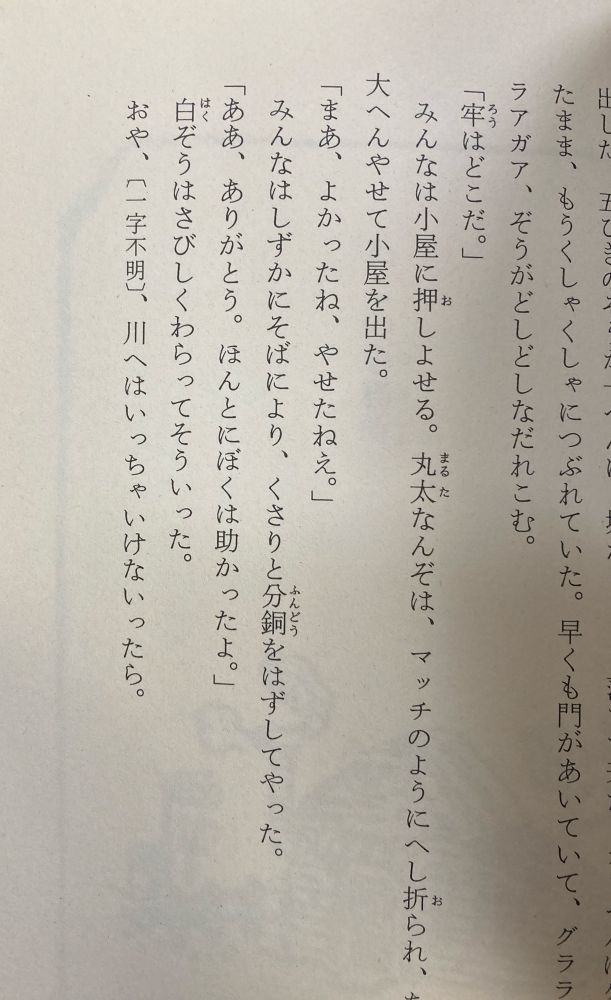 たまま、もうくしゃくしゃにつぶれていた。早くも門があいていて、グララ
ラアガア、ぞうがどしどしなだれこむ。
「牢はどこだ。」
みんなは小屋に押しよせる。丸太なんぞは、マッチのようにへし折られ、
大へんやせて小屋を出た。
「まあ、よかったね、やせたねえ。」
みんなはしずかにそばにより、くさりと分銅をはずしてやった。
「ああ、ありがとう。ほんとにぼくは助かったよ。」
白ぞうはさびしくわらってそういった。
おや、〔一字不明〕、川へはいっちゃいけないったら。